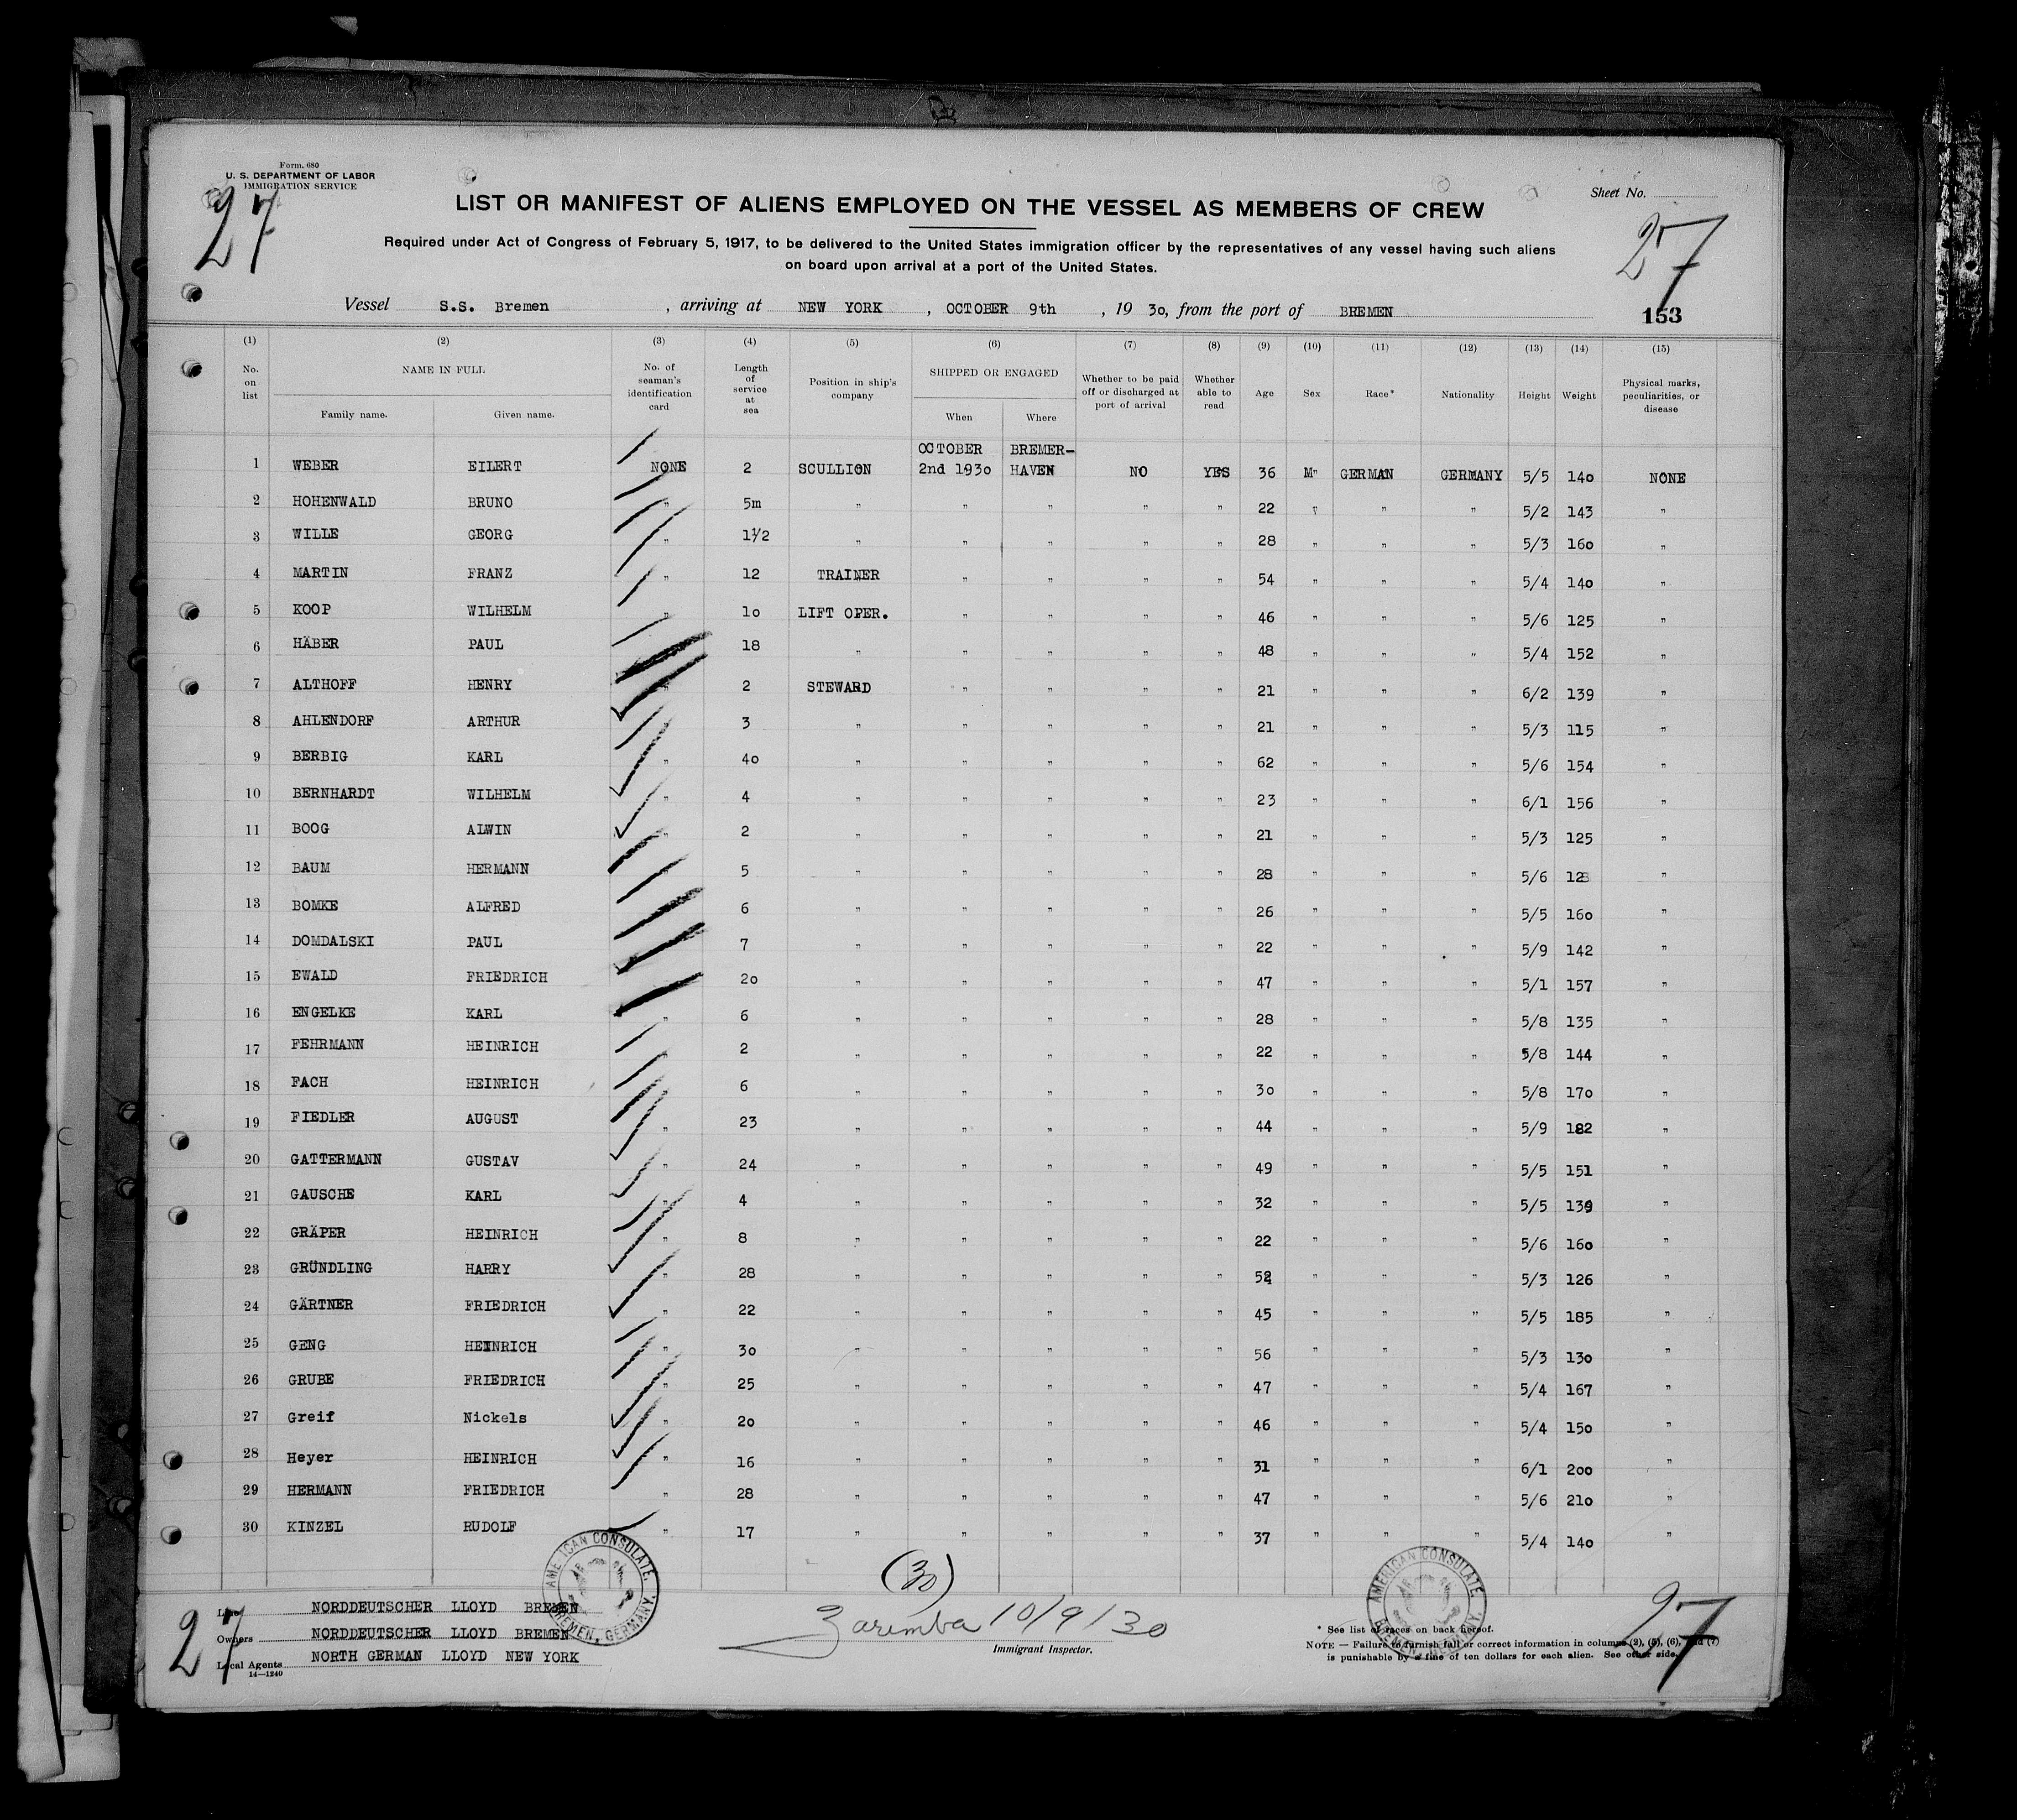 Form. 680
U. S. DEPARTMENT OF LABOR
IMMIGRATION SERVICE
27
Sheet No.
27
LIST OR MANIFEST OF ALIENS EMPLOYED ON THE VESSEL AS MEMBERS OF CREW
Required under Act of Congress of February 5, 1917, to be delivered to the United States immigration officer by the representatives of any vessel having such aliens
on board upon arrival at a port of the United States.
Vessel S.S. Bremen , arriving at NEW YORK , OCTOBER 9th , 19 3o, from the port of BREMEN
153
(1) (2) (3) (4) (5) (6) (7) (8) (9) (10) (11) (12) (13) (14) (15)
No. on list NAME IN FULL Family name. Given name. No. of seaman's identification card Length of service at sea Position in ship's company SHIPPED OR ENGAGED When Where Whether to be paid off or discharged at port of arrival Whether able to read Age Sex Race* Nationality Height Weight Physical marks, peculiarities, or disease
1 WEBER EILERT NONE 2 SCULLION OCTOBER 2nd 193o BREMER-HAVEN NO YES 36 M" GERMAN GERMANY 5/5 14o NONE
2 HOHENWALD BRUNO " 5m " " " " " 22 " " " 5/2 143 "
3 WILLE GEORG " 1½ " " " " " 28 " " " 5/3 16o "
4 MARTIN FRANZ " 12 TRAINER " " " " 54 " " " 5/4 14o "
5 KOOP WILHELM " 1o LIFT OPER. " " " " 46 " " " 5/6 125 "
6 HÄBER PAUL 18 " " " " " 48 " " " 5/4 152 "
7 ALTHOFF HENRY " 2 STEWARD " " " " 21 " " " 6/2 139 "
8 AHLENDORF ARTHUR " 3 " " " " " 21 " " " 5/3 115 "
9 BERBIG KARL " 4o " " " " " 62 " " " 5/6 154 "
10 BERNHARDT WILHELM " 4 " " " " " 23 " " " 6/1 156 "
11 BOOG ALWIN " 2 " " " " " 21 " " " 5/3 125 "
12 BAUM HERMANN " 5 " " " " " 28 " " " 5/6 "
13 BOMKE ALFRED " 6 " " " " " 26 " " " 5/5 16o "
14 DOMDALSKI PAUL " 7 " " " " " 22 " " " 5/9 142 "
15 EWALD FRIEDRICH 2o " " " " " 47 " " " 5/1 157 "
16 ENGELKE KARL " 6 " " " " " 28 " " " 5/8 135 "
17 FEHRMANN HEINRICH " 2 " " " " " 22 " " " 5/8 144 "
18 FACH HEINRICH " 6 " " " " " 3o " " " 5/8 17o "
19 FIEDLER AUGUST " 23 " " " " " 44 " " " 5/9 182 "
20 GATTERMANN GUSTAV " 24 " " " " " 49 " " " 5/5 151 "
21 GAUSCHE KARL " 4 " " " " " 32 " " " 5/5 139 "
22 GRÄPER HEINRICH " 8 " " " " " 22 " " " 5/6 16o "
23 GRÜNDLING HARRY " 28 " " " " " " " " 5/3 126 "
24 GÄRTNER FRIEDRICH " 22 " " " " " 45 " " " 5/5 185 "
25 GENG HEINRICH " 3o " " " " " 56 " " " 5/3 13o "
26 GRUBE FRIEDRICH " 25 " " " " " 47 " " " 5/4 167 "
27 Greif Nickels " 2o " " " " " 46 " " " 5/4 15o "
28 Heyer HEINRICH " 16 " " " " " 31 " " " 6/1 2oo "
29 HERMANN FRIEDRICH " 28 " " " " " 47 " " " 5/6 21o "
30 KINZEL RUDOLF " 17 " " " " " 37 " " " 5/4 14o "
(30)
AMERICAN CONSULATE, BREMEN, GERMANY.
AMERICAN CONSULATE, BREMEN, GERMANY.
27
27
Line NORDDEUTSCHER LLOYD BREMEN
Owners NORDDEUTSCHER LLOYD BREMEN
Local Agents NORTH GERMAN LLOYD NEW YORK
14—1240
Zaremba 10/9/30
Immigrant Inspector.
* See list of races on back hereof.
NOTE — Failure to furnish full or correct information in columns (2), (5), (6), and (7)
is punishable by a fine of ten dollars for each alien. See other side.